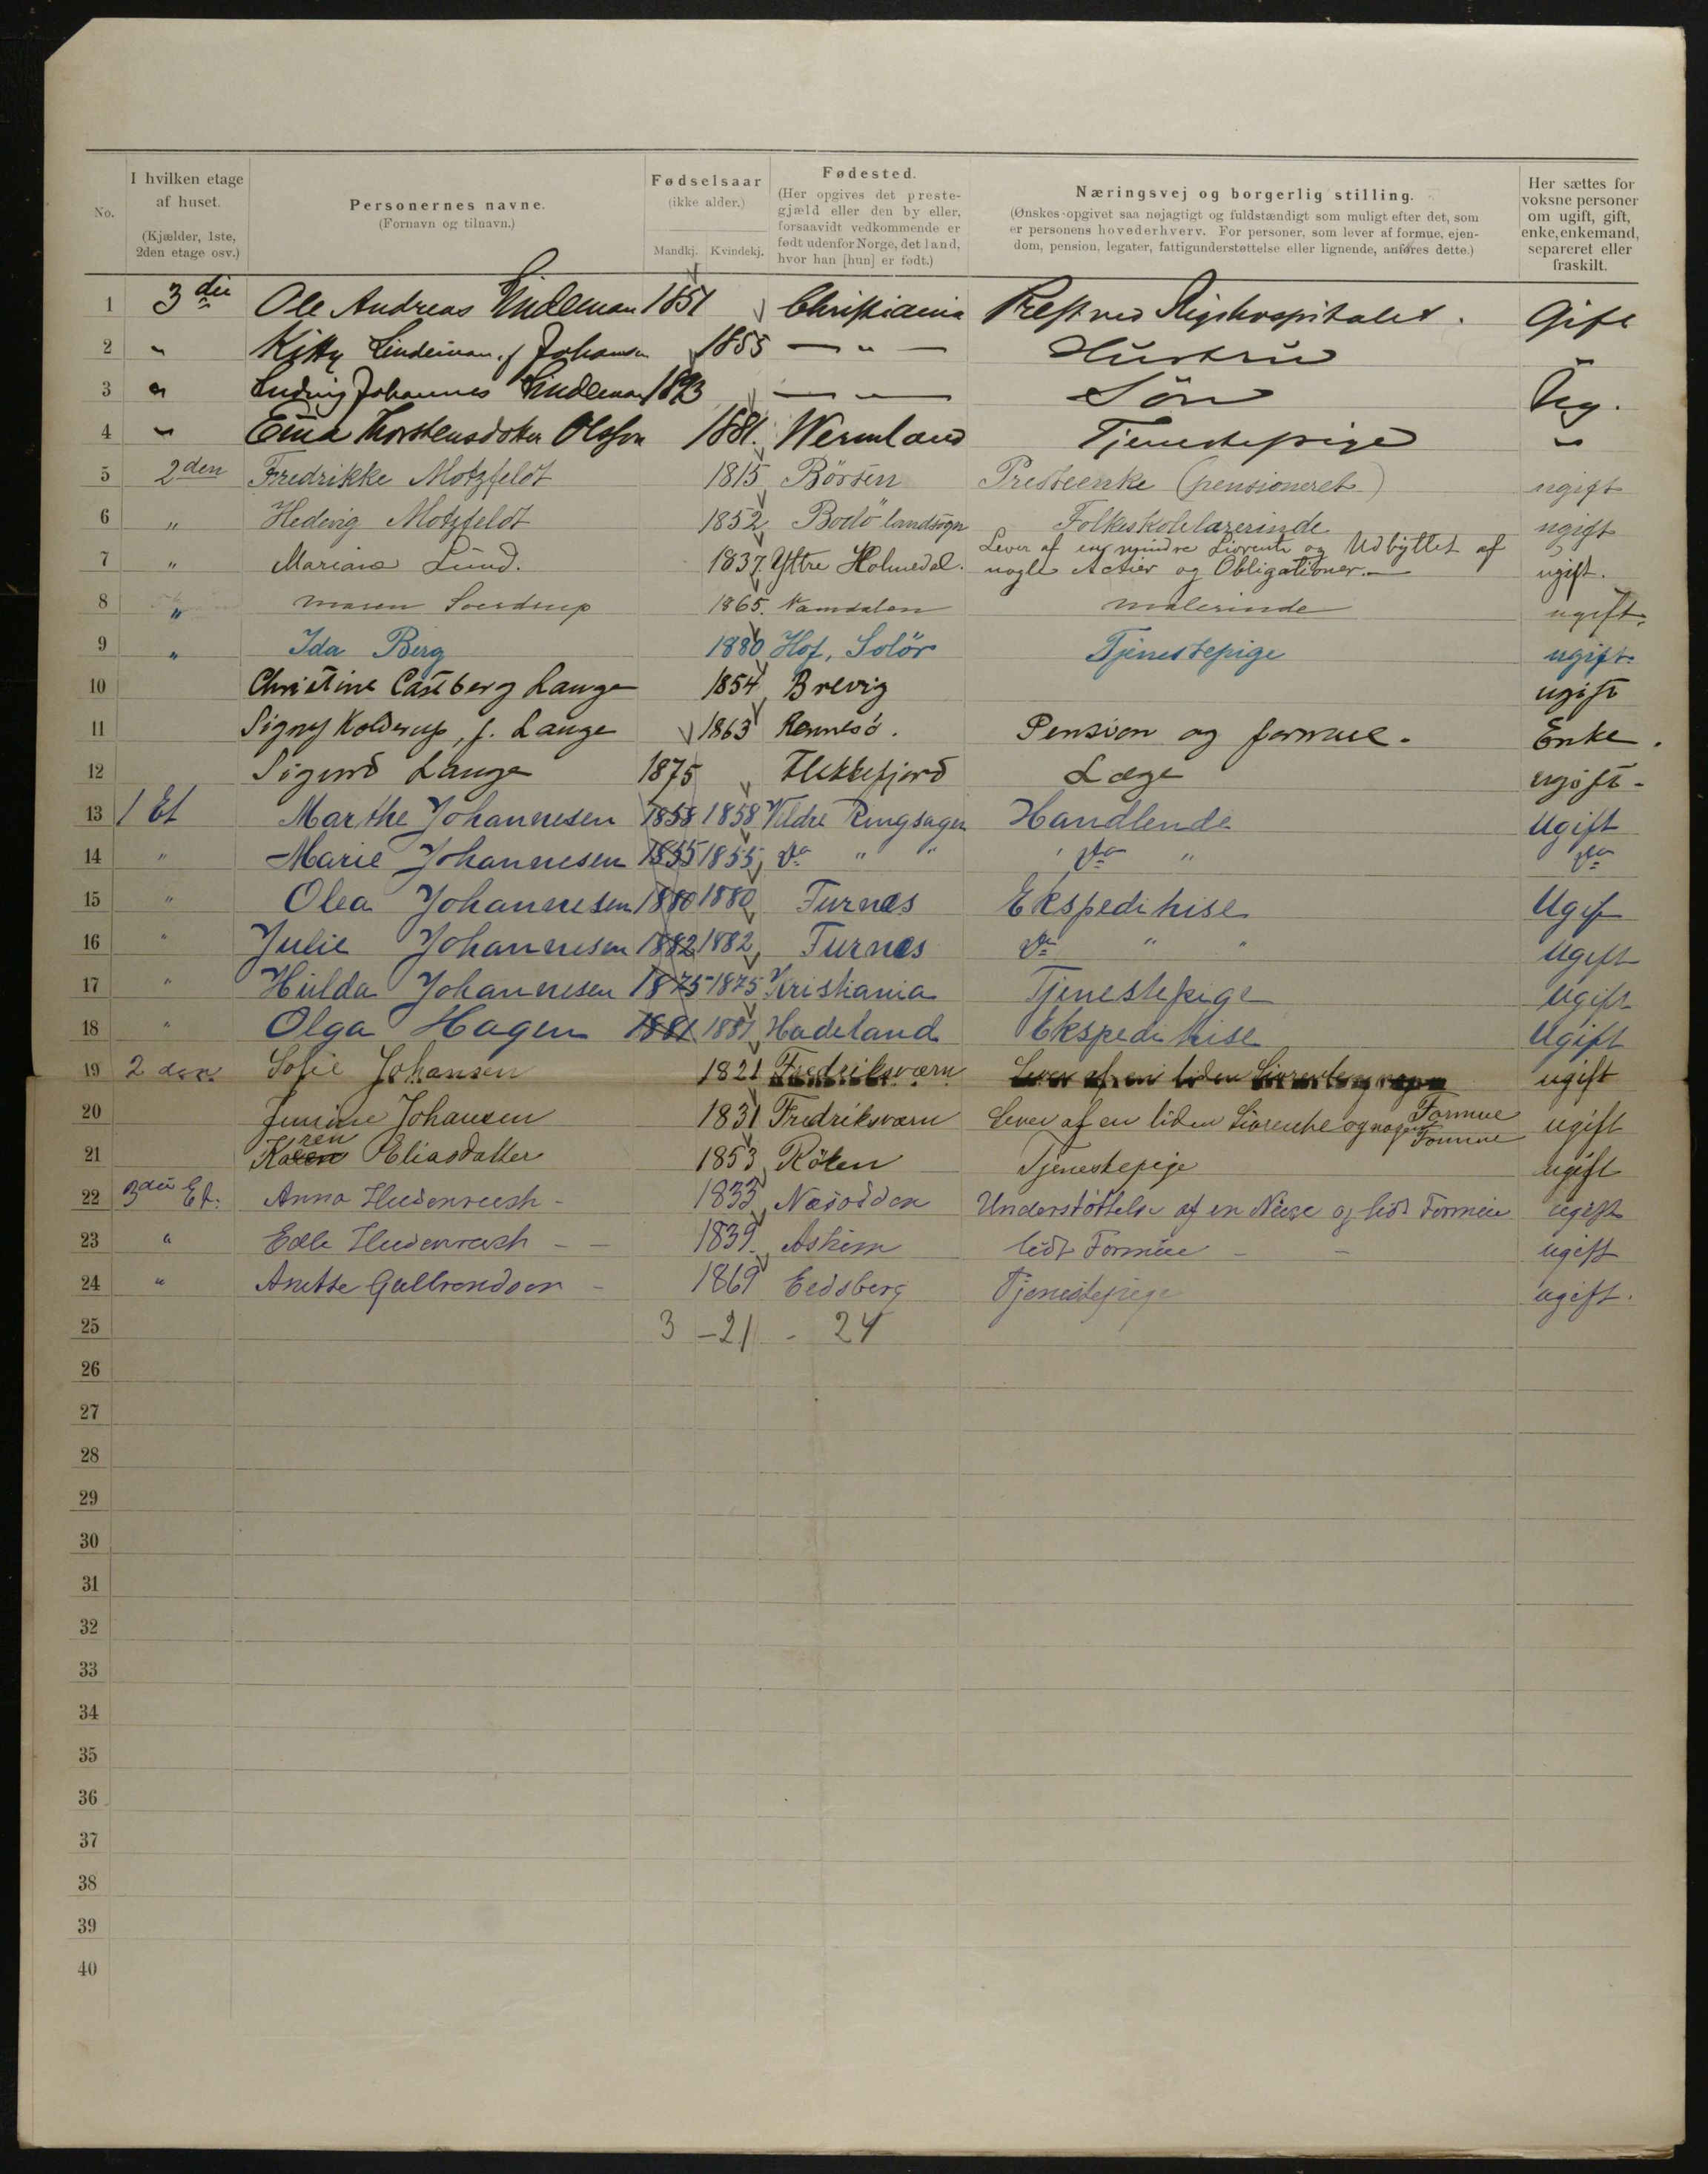 No.
I hvilken etage af huset. (Kjælder, 1ste, 2den etage osv.)
Personernes navne. (Fornavn og tilnavn.)
Fødselsaar (ikke alder.) Mandkj. Kvindekj.
Fødested. (Her opgives det prestegjæld eller den by eller, forsaavidt vedkommende er født udenfor Norge, det land, hvor han [hun] er født.)
Næringsvej og borgerlig stilling. (Ønskes opgivet saa nøjagtigt og fuldstændigt som muligt efter det, som er personens hovederhverv. For personer, som lever af formue, ejendom, pension, legater, fattigunderstøttelse eller lignende, anføres dette.)
Her sættes for voksne personer om ugift, gift, enke, enkemand, separeret eller fraskilt.
1 3die Ole Andreas Lindeman 1851 Christiania Prest ved Rigshospitalet. Gift
2 " Kitty Lindeman, f Johansen 1855 — " — Hustru
3 " Ludvig Johannes Lindeman 1893 — " — Søn Ug.
4 " Emma Thorstensdoter Olsson 1881. Wermland Tjenestepige "
5 2den Fredrikke Motzfeldt 1815 Børsen Presteenke (pensioneret) ugift
6 " Hedevig Motzfeldt 1852 Bodø landsogn Folkeskolelærerinde ugift
7 " Mariane Lund. 1837. Yttre Holmedal. Lever af en mindre Livrente og Udbyttet af nogle Actier og Obligationer.— ugift.
8 " Maren Sverdrup 1865. Namdalen malerinde ugift.
9 " Ida Berg 1880 Hof, Solør Tjenestepige ugift.
10 Christine Castberg Lange 1854 Brevig ugift
11 Signy Kolderup, f. Lange 1863 Rennesø. Pension og formue. Enke.
12 Sigurd Lange 1875 Flekkefjord Læge ugift.
13 1 Et Marthe Johannesen 1858 1858 Veldre Ringsager Handlende Ugift
14 " Marie Johannesen 1855 1855 do " " do " do
15 " Olea Johannesen 1880 1880 Furnes Ekspeditrise Ugift
16 " Julie Johannesen 1882 1882 Furnes do " " Ugift
17 " Hulda Johannesen 1875 1875 Kristiania Tjenestepige Ugift
18 " Olga Hagen 1881 1881 Hadeland Ekspeditrise Ugift
19 2den Sofie Johansen 1821 Fredriksværn Lever af en liden Livrente og nogen ugift
20 Jensine Johansen 1831 Fredriksværn Lever af en liden Livrente og nogen Formue Formue ugift
21 Karen ren Eliasdatter 1853 Røken Tjenestepige ugift
22 3die Et. Anna Heidenreich - 1833 Næsodden Understøttelse af en Niece og lidt Formue ugift
23 " Edle Heidenreich - - 1839. Askim lidt Formue - - ugift
24 " Anette Gulbrandsen - 1869 Eedsberg Tjenestepige ugift.
25 3 - 21 - 24
26
27
28
29
30
31
32
33
34
35
36
37
38
39
40